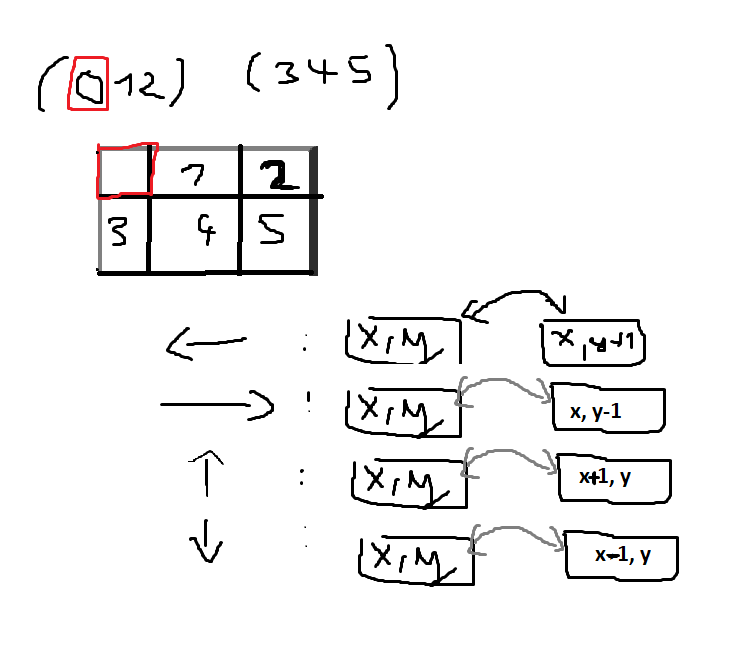 (012) (345)
1 2
3 4 5
← : x,y x,y+1
→ : x,y x, y-1
↑ : x,y x+1, y
↓ : x,y x-1, y